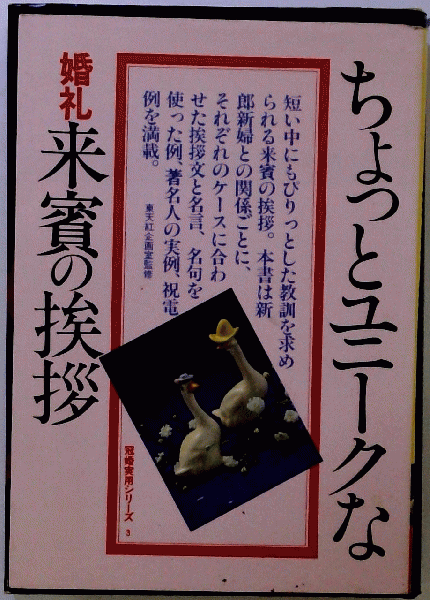 ちょっとユニークな
婚礼
来賓の挨拶
短い中にもぴりっとした教訓を求め
られる来賓の挨拶。本書は新
郎新婦との関係ごとに、
それぞれのケースに合わ
せた挨拶文と名言、名句を
使った例、著名人の実例、祝電
例を満載。
東天紅企画室監修
冠婚実用シリーズ 3